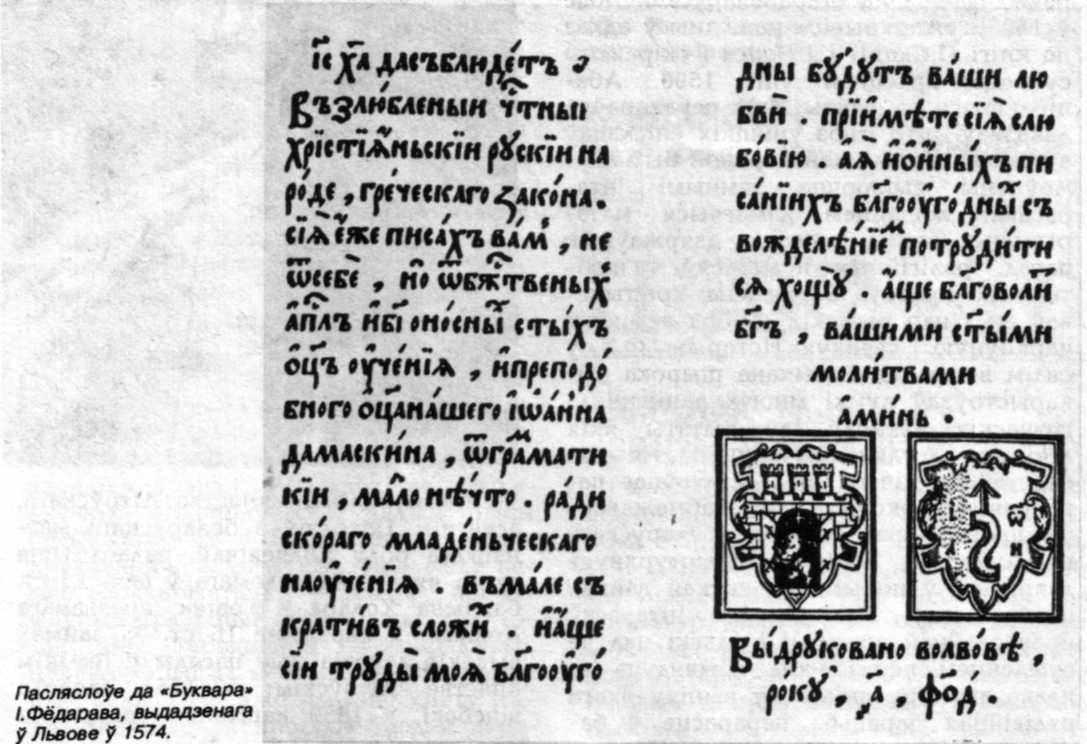 і҃с х҃а дасъблюдетъ ,
Възлюбленыи ч҃тныи
хрїстїꙗ́ньскїи рꙋскїи на
ро́де , гре́ческаго ꙁако́на .
сїѧ̀ є҆́же писахъ ва́м , не
ѿсебѐ , но ѿбж҃твеныхъ
а҆пл҃ъ и҆б҃ і оно́сны с҃ты́хъ
ѻ҆ц҃ъ оу҆че́нїѧ , и҆преподо́
бного ѻ҆ц҃ана́шего і҆ѡа́нна
дамаски́на , ѿграмати
кїи , ма́ло нѣ́что . ра́ди
ско́раго младе́ньческаго
наоуче́нїѧ . въма́ле съ
кративъ сложи́ . и҆а҆́ще
сїи трꙋды̀ моѧ̀ бл҃гооуго
дны бꙋ́дꙋтъ ва́ши лю
бви̂ . прїими́те сїѧ̀ слю
бо́вїю . а҆ꙗ҆̀ нои҆ны́хъ пи
са́нїихъ бл҃гооуго́дныхъ съ
вожделѣ́нїем потрꙋди́ти
сѧ хощꙋ̀ . а҆́ще бл҃говоли́
бг҃ъ , ва́шими с҃ты́ми
моли́твами
а҆ми́нь .
ѿ
и
Вы́дрꙋковано волво́вѣ ,
рокꙋ , ҂а҃ , ф҃о҃д҃
Пасляслоўе да «Буквара»
І.Фёдарава, выдадзенага
ў Львове ў 1574.